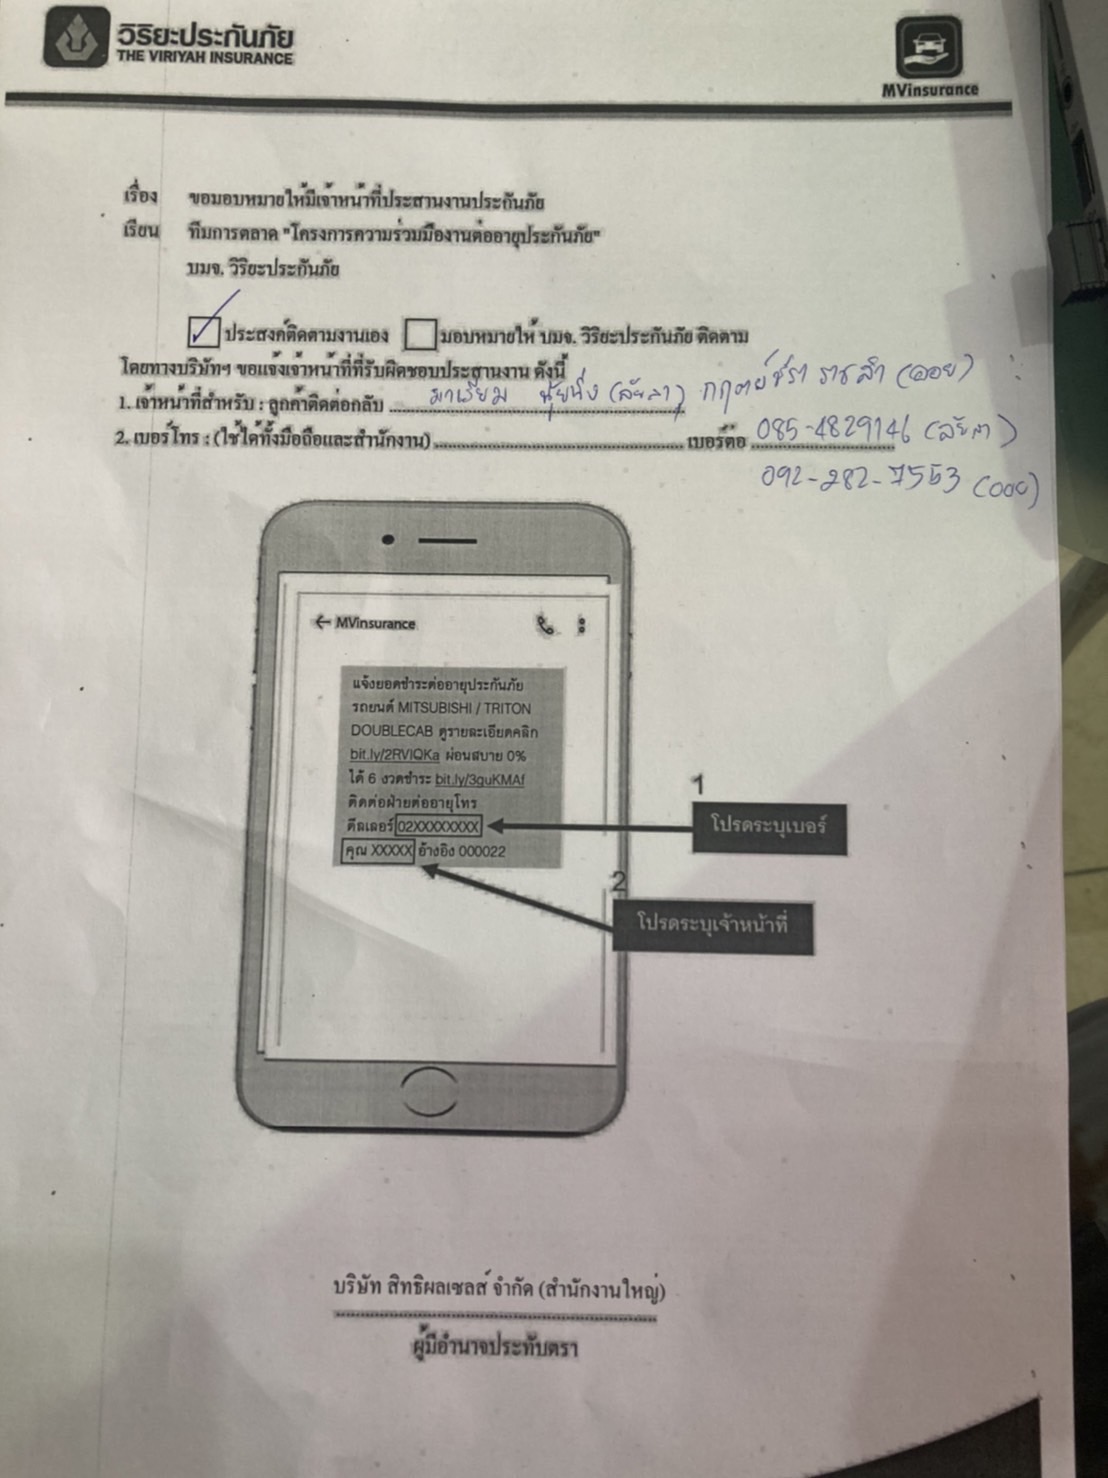 วิริยะประกันภัย
THE VIRIYAH INSURANCE
MVinsurance
เรื่อง ขอมอบหมายให้มีเจ้าหน้าที่ประสานงานประกันภัย
เรียน ทีมการตลาด "โครงการความร่วมมืองานต่ออายุประกันภัย"
บมจ. วิริยะประกันภัย
ประสงค์ติดตามงานเอง มอบหมายให้ บมจ. วิริยะประกันภัย ติดตาม
โดยทางบริษัทฯ ขอแจ้งเจ้าหน้าที่ที่รับผิดชอบประสานงาน ดังนี้
1. เจ้าหน้าที่สำหรับ : ลูกค้าติดต่อกลับ มาเรียม (ลัยลา) (ออย)
2. เบอร์โทร : (ใช้ได้ทั้งมือถือและสำนักงาน) เบอร์ต่อ 085-4829146 (ลัยลา)
092-282-7553 (ออย)
← MVinsurance
แจ้งยอดชำระต่ออายุประกันภัย
รถยนต์ MITSUBISHI / TRITON
DOUBLECAB ดูรายละเอียดคลิก
bit.ly/2RVIQKa ผ่อนสบาย 0%
ได้ 6 งวดชำระ bit.ly/3guKMAf
ติดต่อฝ่ายต่ออายุโทร
ดีลเลอร์ 02XXXXXXXX
คุณ XXXXX อ้างอิง 000022
1
โปรดระบุเบอร์
2
โปรดระบุเจ้าหน้าที่
บริษัท สิทธิผลเซลส์ จำกัด (สำนักงานใหญ่)
ผู้มีอำนาจประทับตรา